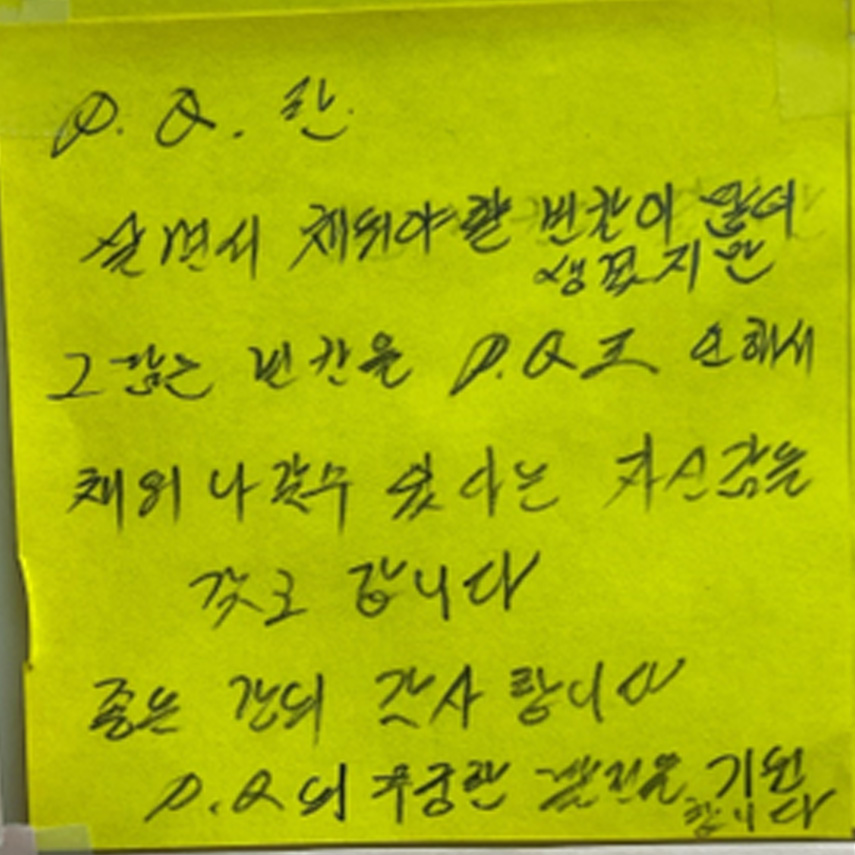 D.Q.란.
살면서 채워야할 빈칸이 많이
생겼지만
그 많은 빈칸을 D.Q로 인해서
채워 나갈수 있다는 자신감을
갖고 갑니다
좋은 강의 감사합니다
D.Q의 무궁한 발전을 기원
합니다